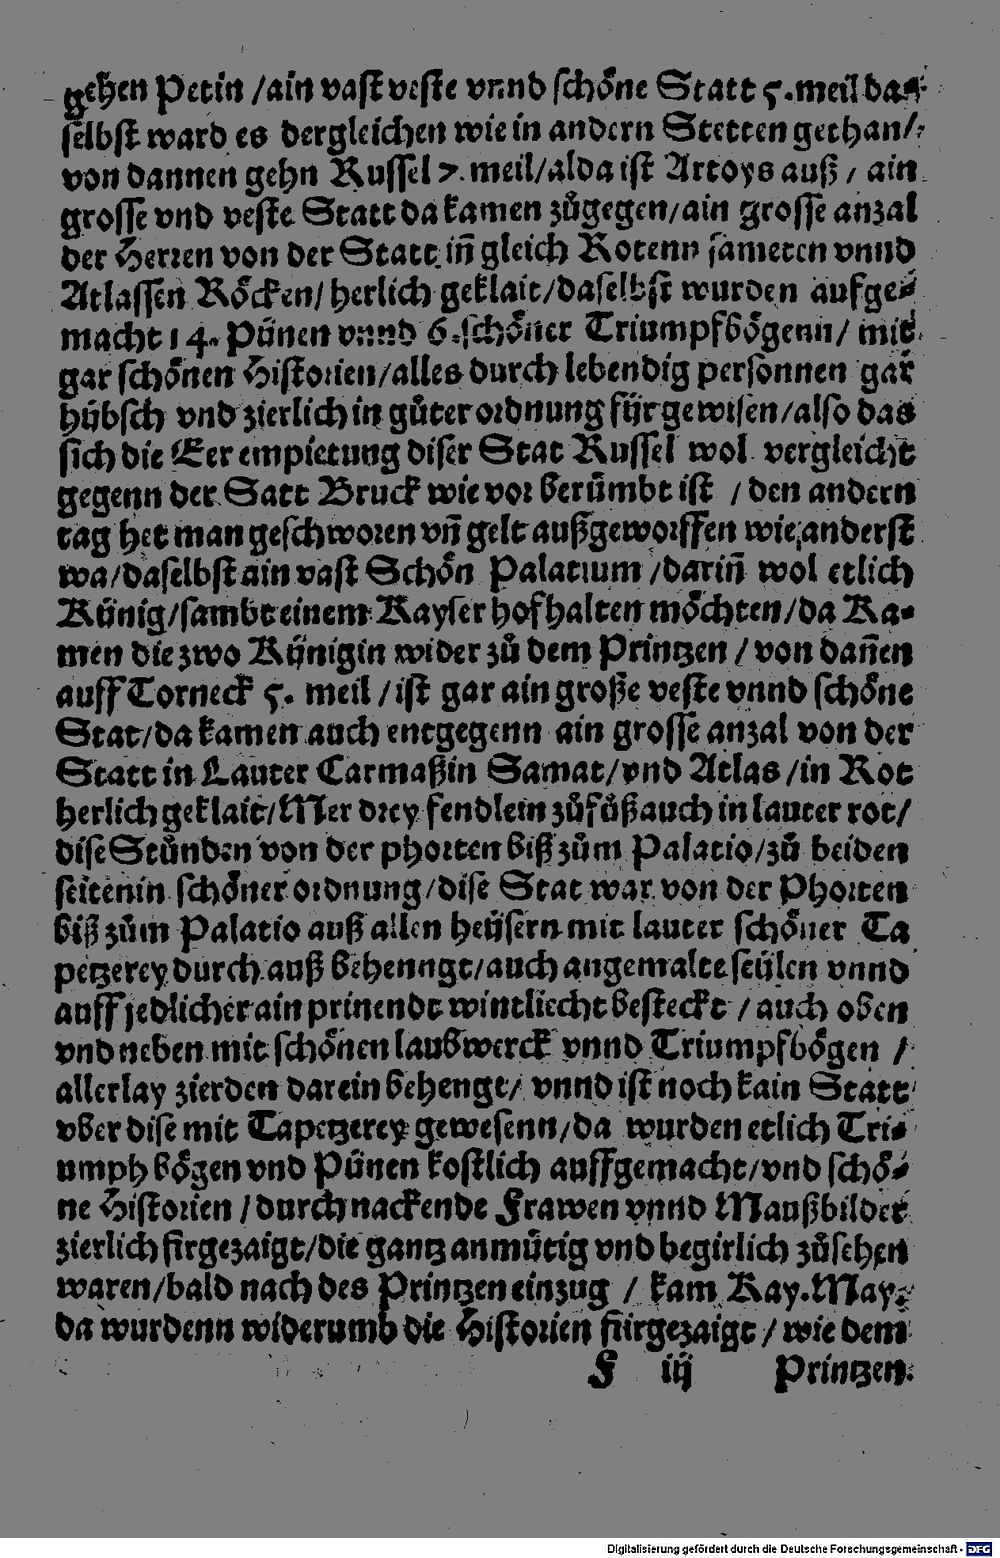 gehen Petin /ain vast veste vnnd schöne Statt 5.meil da⸗
selbst ward es dergleichen wie in andern Stetten gethan/
von dannen gehn Russel 7. meil/alda ist Artoys auß / ain
grosse vnd veste Statt da kamen zůgegen/ain grosse anzal
der Herren von der Statt in̄ gleich Rotenn sameten vnnd
Atlassen Röcken/ herlich geklait/daselbst wurden aufge⸗
macht 14. Pünen vnnd 6.schöner Triumpfbögenn/ mit
gar schönen Historien/alles durch lebendig personnen gar
hübsch vnd zierlich in gůter ordnung für gewisen/also das
sich die Eer empietung diser Stat Russel wol vergleicht
gegenn der Satt Bruck wie vor berůmbt ist / den andern
tag het man geschworen vn̄ gelt außgeworffen wie anderst
wa/daselbst ain vast Schön Palatium /darin̄ wol etlich
Künig/sambt einem Kayser hofhalten möchten/da Ka⸗
men die zwo Künigin wider zů dem Printzen / von dan̄en
auff Torneck 5. meil /ist gar ain große veste vnnd schöne
Stat/da kamen auch entgegenn ain grosse anzal von der
Statt in Lauter Carmaßin Samat/vnd Atlas /in Rot
herlich geklait/Mer drey fendlein zůfůß auch in lauter rot/
dise Stůnden von der phorten biß zům Palatio/zů beiden
seitenin schöner ordnung/dise Stat war von der Phorten
biß zům Palatio auß allen heüsern mit lauter schöner Ta
petzerey durch auß behenngt/auch angemalte seülen vnnd
auff jedlicher ain prinendt wintliecht besteckt / auch oben
vnd neben mit schönen laubwerck vnnd Triumpfbögen /
allerlay zierden darein behengt/ vnnd ist noch kain Statt
vber dise mit Tapetzerey gewesenn/da wurden etlich Tri⸗
umph bögen vnd Pünen kostlich auffgemacht/vnd schö⸗
ne Historien / durch nackende Frawen vnnd Maußbilder
zierlich firgezaigt/die gantz anmütig vnd begirlich zůsehen
waren/bald nach des Printzen einzug / kam Kay.May.
da wurdenn widerumb die Historien fürgezaigt / wie dem
F iij Printzen
Digitalisierung gefördert durch die Deutsche Forschungsgemeinschaft - DFG